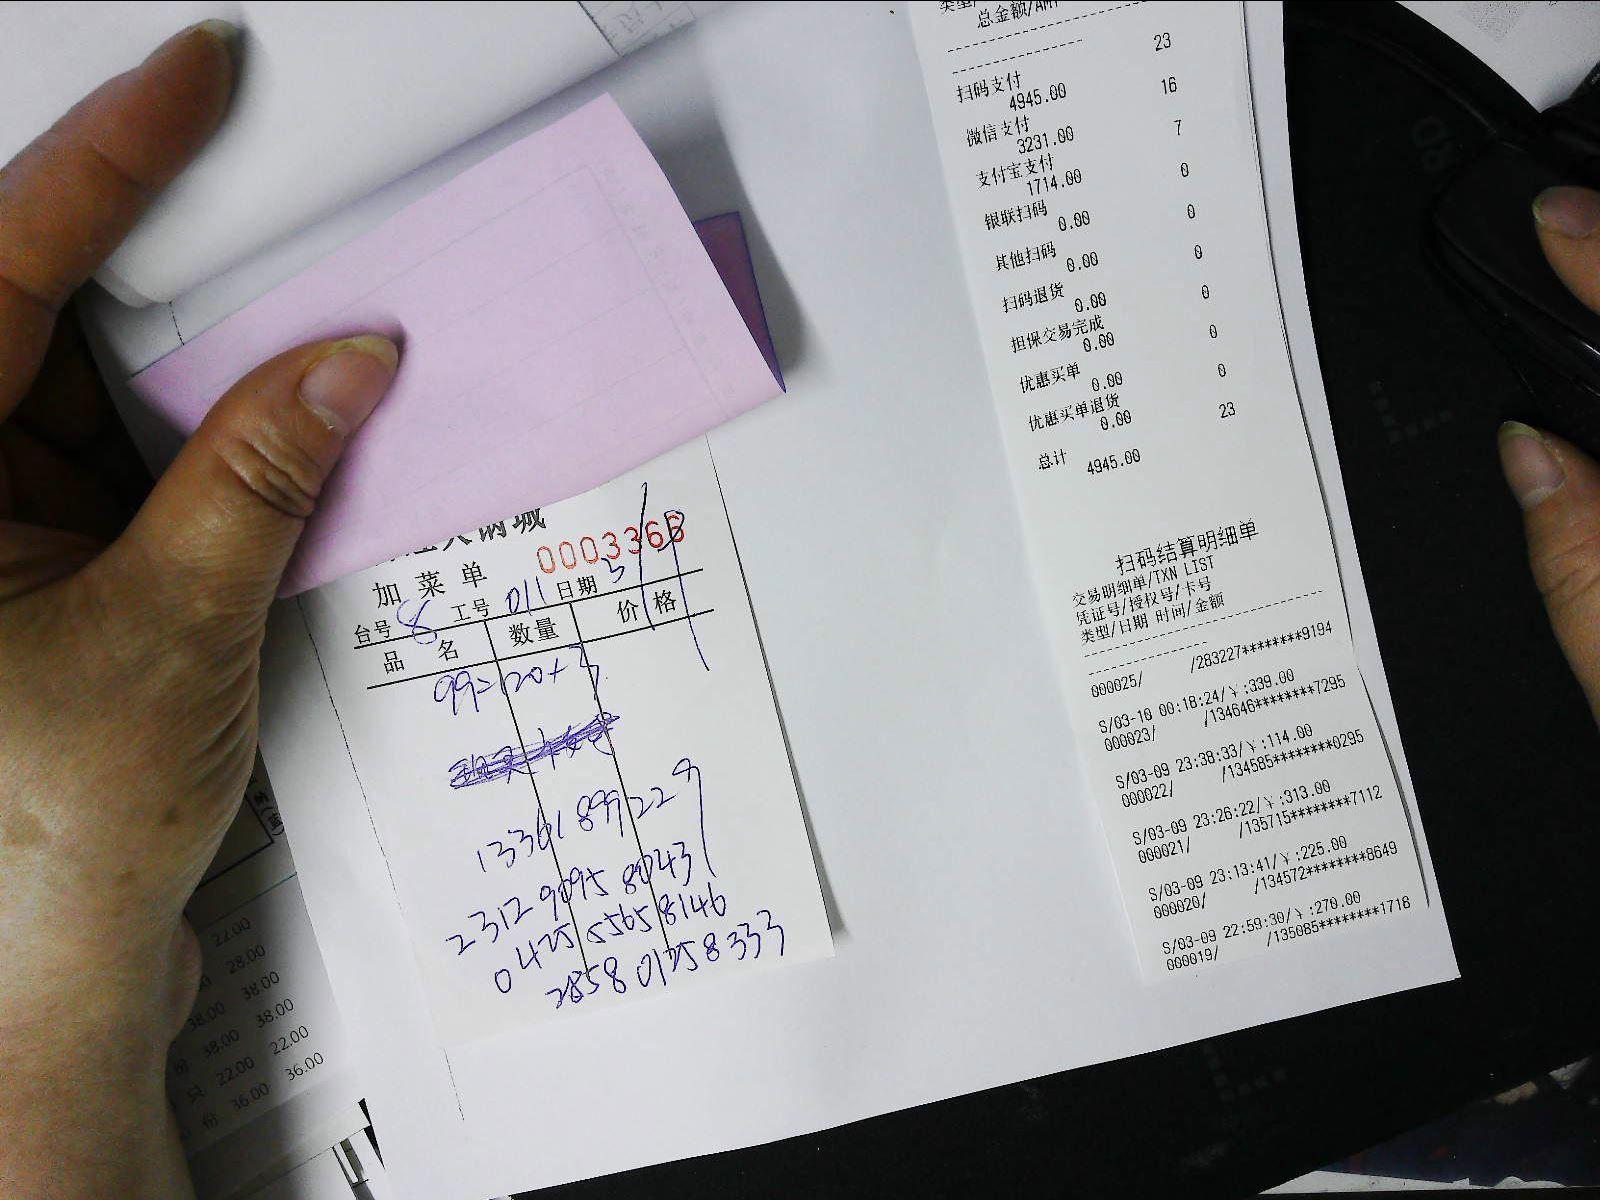 总金额/AMT
23
扫码支付
4945.00 16
微信支付
3231.00 7
支付宝支付
1714.00 0
银联扫码
0.00 0
其他扫码
0.00 0
扫码退货
0.00 0
担保交易完成
0.00 0
优惠买单
0.00 0
优惠买单退货
0.00 23
总计
4945.00
扫码结算明细单
交易明细单/TXN LIST
凭证号/授权号/卡号
类型/日期 时间/金额
000025/ /283227********9194
S/03-10 00:18:24/¥:339.00
000023/ /134646********7295
S/03-09 23:38:33/¥:114.00
000022/ /134585********0295
S/03-09 23:26:22/¥:313.00
000021/ /135715********7112
S/03-09 23:13:41/¥:225.00
000020/ /134572********8649
S/03-09 22:59:30/¥:270.00
000019/ /135085********1718
火锅城
0003366
加菜单
台号 8 工号 011 日期 3/9
品名 数量 价格
99=120+3
13361899229
2312 9095 8043
0425 5565 8146
2858 0125 8333
22.00
28.00
38.00 38.00
份 38.00 38.00
只 22.00 22.00
份 36.00 36.00